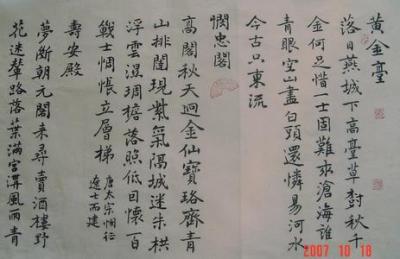 黄金臺
落日燕城下高臺草树秋千
金何足惜一士固難求滄海誰
青眼空山盡白頭還憐易河水
今古只東流
憫忠閣
高閣秋天迥金仙寶珞齊青
山排闥現紫氣隔城迷朱栱
浮雲濕琱檐落照低回懷百
戰士惆悵立層梯
唐太宗憫征
遼士而建
壽安殿
夢斷朝元閣来尋賣酒樓野
花迷輦路落葉滿宮溝風雨青
2007 10 18